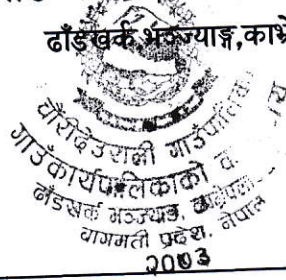 ढाँडखर्क भञ्ज्याङ्ग,काभ्रे
चौरीदेउराली गाउँपालिका
गाउँकार्यपालिकाको
ढाँडखर्क भञ्ज्याङ, काभ्रेपला
वागमती प्रदेश, नेपाल
२०७३